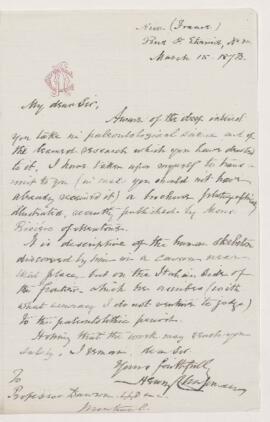 Nice (France)
March 15. 1873.
My dear Sir,
Aware of the deep interest
you take in palaeontological science and of
the learned research which you have devoted
to it, I have taken upon myself to trans-
mit to you (in case you should not have
already received it) a brochure photographically
illustrated, recently published by Mons.
Rivière of Mentone.
It is descriptive of the human skeleton
discovered by him in a cavern near
that place, but on the Italian side of
the frontier which he considers (with
what accuracy I do not venture to judge)
to the palaeolithic period.
Hoping that the work may reach you
safely, I remain, Dear Sir
Yours faithfully
Henry Chapman
To
Professor Dawson
Montreal.